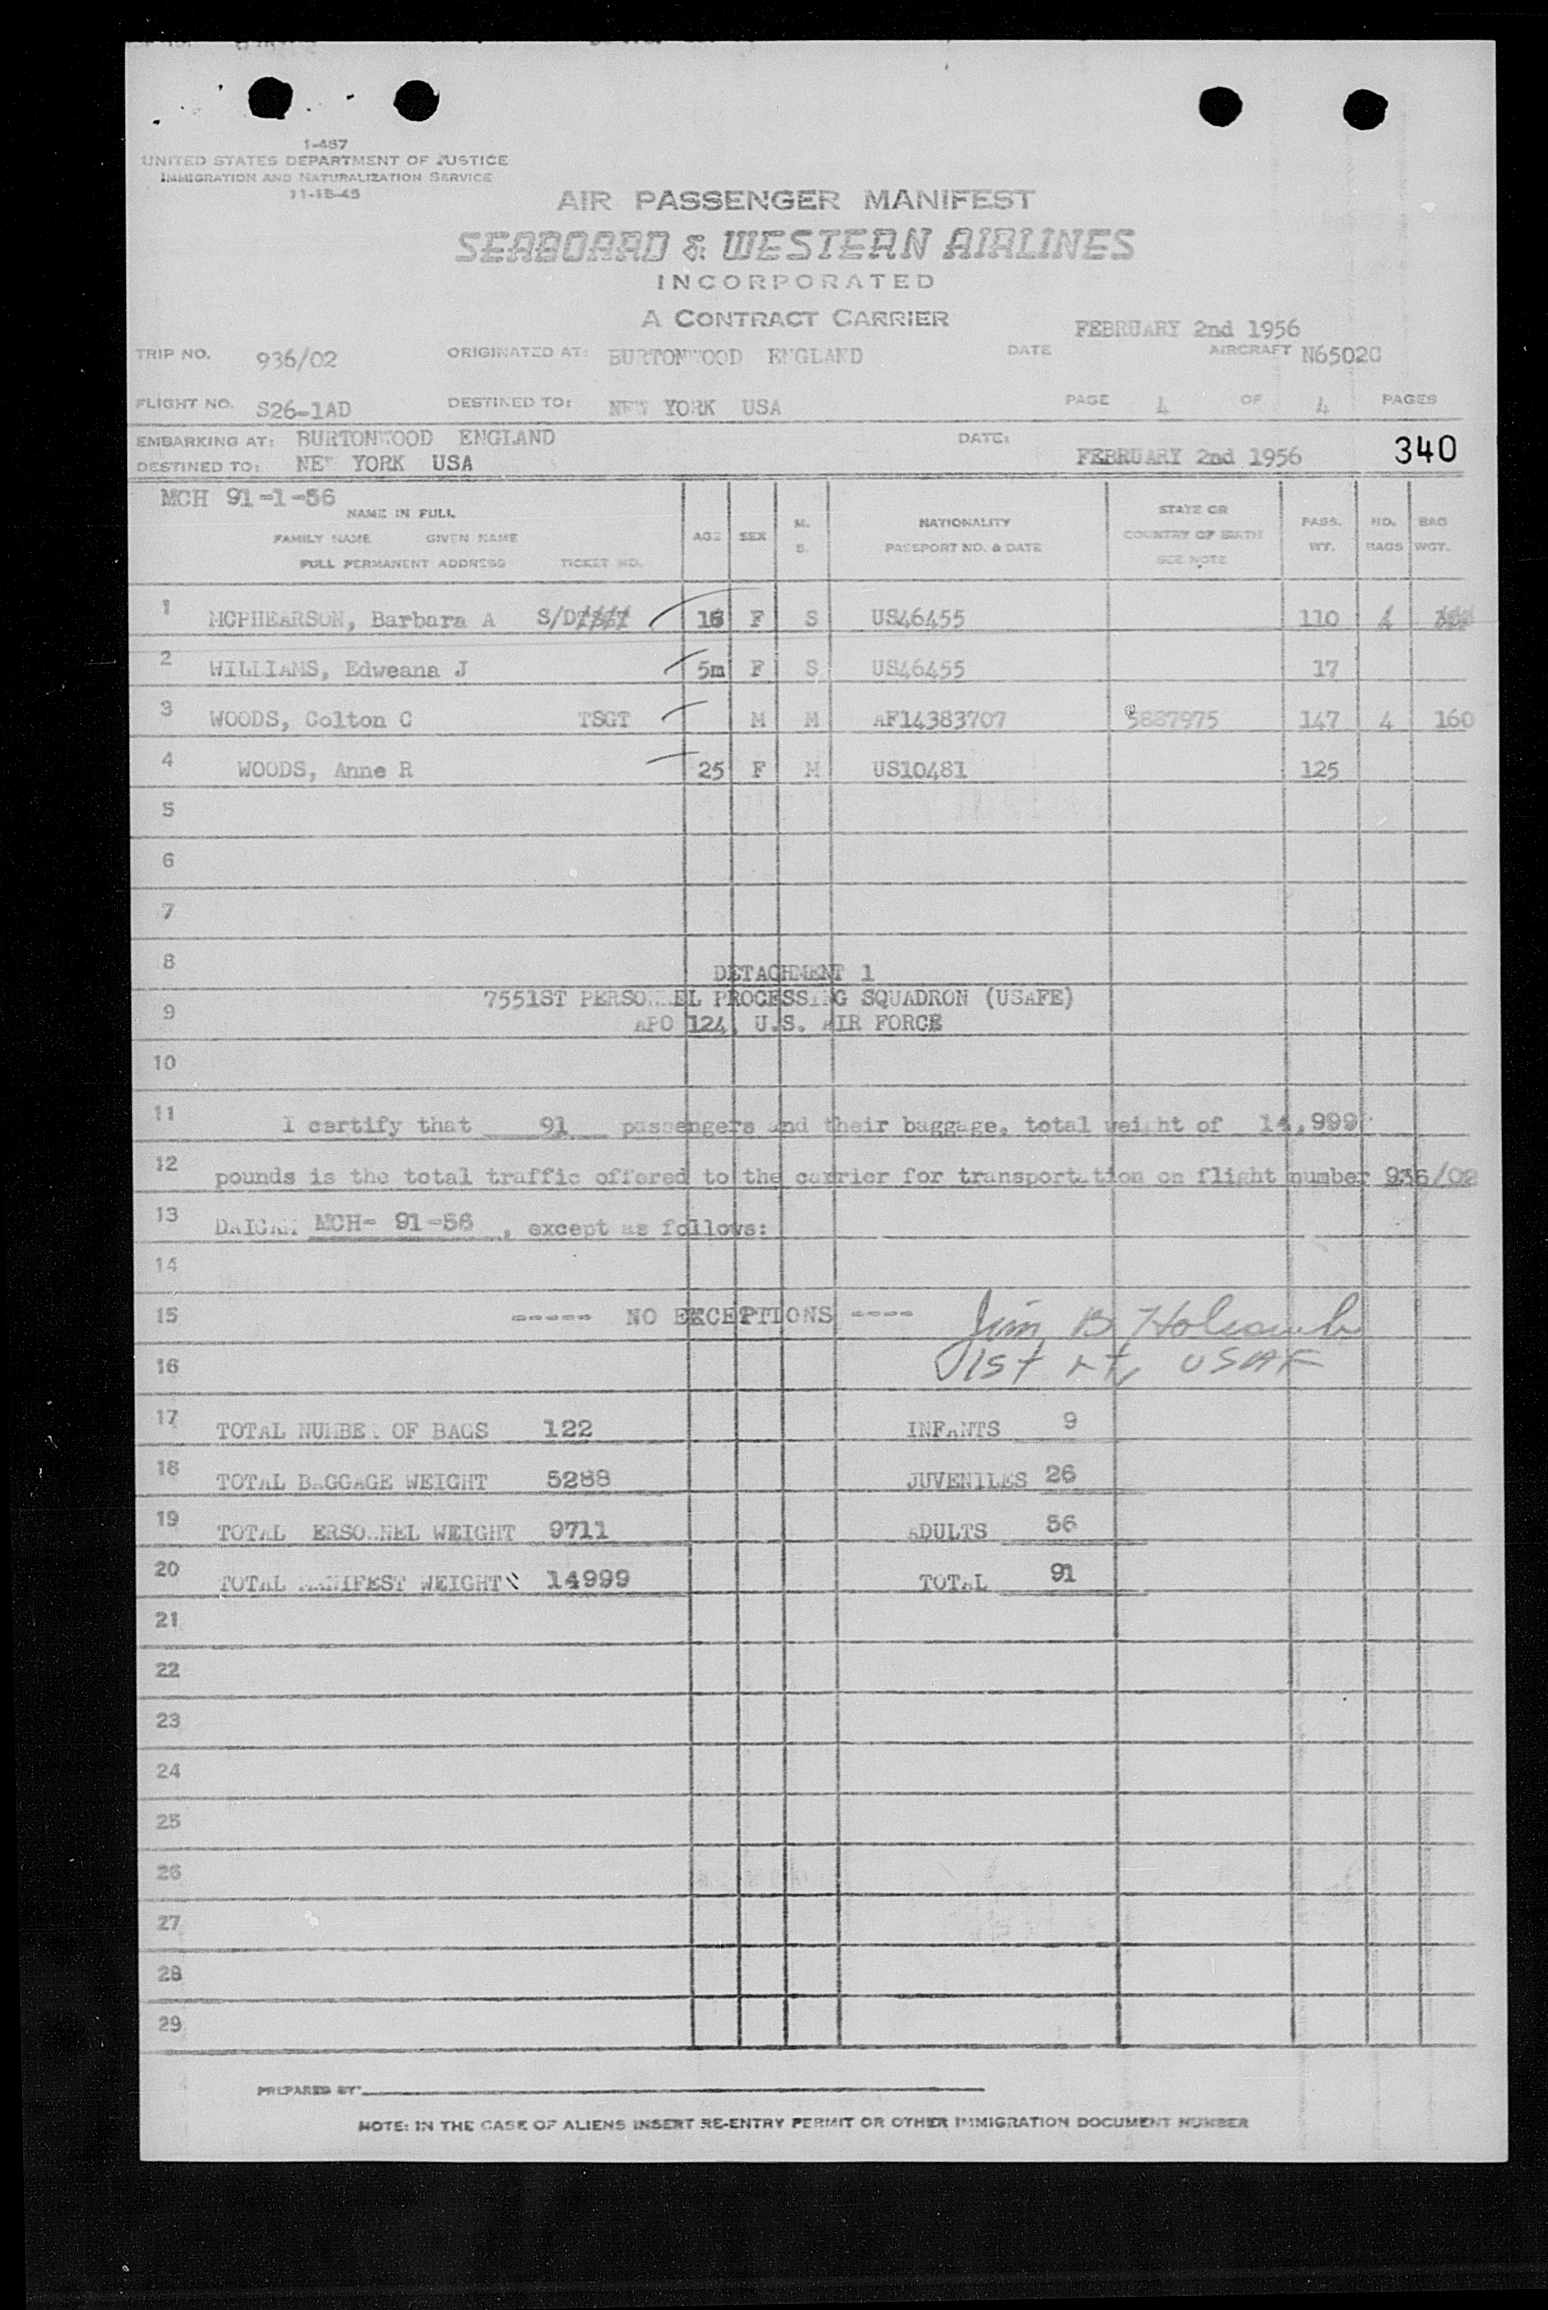 1-467
UNITED STATES DEPARTMENT OF JUSTICE
IMMIGRATION AND NATURALIZATION SERVICE
11-15-45
AIR PASSENGER MANIFEST
SEABOARD & WESTERN AIRLINES
INCORPORATED
A CONTRACT CARRIER
FEBRUARY 2nd 1956
TRIP NO. 936/02 ORIGINATED AT: BURTONWOOD ENGLAND DATE AIRCRAFT N6502C
FLIGHT NO. S26-1AD DESTINED TO: NEW YORK USA PAGE 4 OF 4 PAGES
EMBARKING AT: BURTONWOOD ENGLAND DATE:
DESTINED TO: NEW YORK USA FEBRUARY 2nd 1956 340
MCH 91-1-56
NAME IN FULL
FAMILY NAME GIVEN NAME
FULL PERMANENT ADDRESS TICKET NO.
AGE SEX M. S. NATIONALITY PASSPORT NO. & DATE STATE OR COUNTRY OF BIRTH SEE NOTE PASS. WT. NO. BAGS BAG WGT.
1 MCPHEARSON, Barbara A S/D F S US46455 110
2 WILLIAMS, Edweana J 5m F S US46455 17
3 WOODS, Colton C TSGT M M AF14383707 5887975 147 4 160
4 WOODS, Anne R 25 F M US10481 125
5
6
7
8 DETACHMENT 1
7551ST PERSONNEL PROCESSING SQUADRON (USAFE)
9 APO 124, U.S. AIR FORCE
10
11 I certify that 91 passengers and their baggage, total weight of 14,999
12 pounds is the total traffic offered to the carrier for transportation on flight number 936/02
13 MCH- 91-56, except as follows:
14
15 ----- NO EXCEPTIONS ---- Jim B Holcomb
16 1st Lt, USAF
17 TOTAL NUMBER OF BAGS 122 INFANTS 9
18 TOTAL BAGGAGE WEIGHT 5288 JUVENILES 26
19 TOTAL PERSONNEL WEIGHT 9711 ADULTS 56
20 TOTAL MANIFEST WEIGHT 14999 TOTAL 91
21
22
23
24
25
26
27
28
29
PREPARED BY
NOTE: IN THE CASE OF ALIENS INSERT RE-ENTRY PERMIT OR OTHER IMMIGRATION DOCUMENT NUMBER